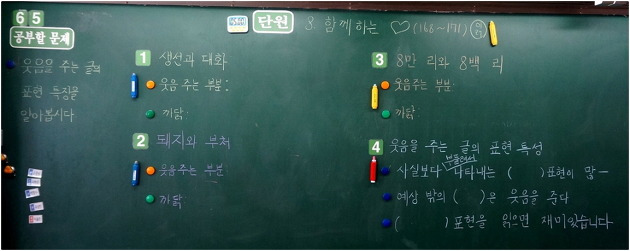 65
단원 8. 함께하는 ♡ (168~171)
공부할 문제
웃음을 주는 글의
표현 특징을
알아봅시다
1 생선과 대화
웃음 주는 부분:
까닭:
2 돼지와 부처
웃음주는 부분
까닭
3 8만 리와 8백 리
웃음주는 부분:
까닭:
4 웃음을 주는 글의 표현 특성
사실보다 부풀려서 나타내는 ( ) 표현이 많-
예상 밖의 ( )은 웃음을 준다
( ) 표현을 읽으면 재미있습니다